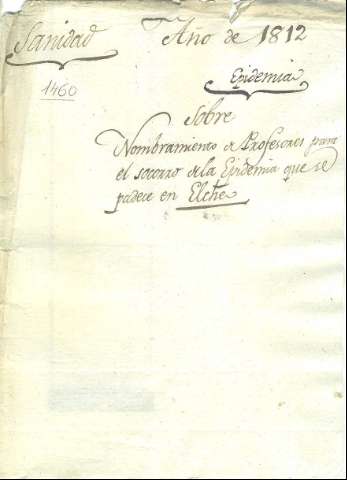 Sanidad Año de 1812
Epidemia
1460
Sobre
Nombramiento de Profesores para
el socorro de la Epidemia que se
padece en Elche